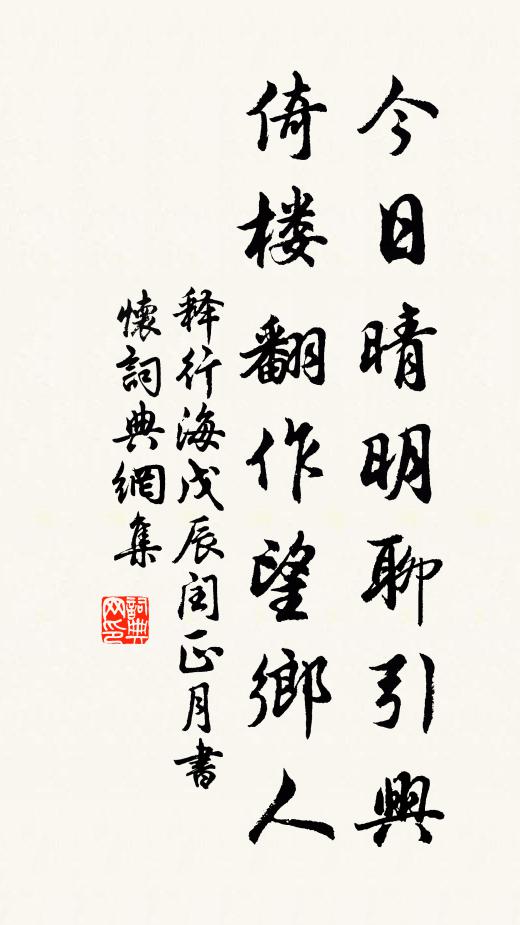 今日晴明聊引興
倚楼翻作望鄉人
释行海戊辰閏正月書
懷詞典網集
詞典
网印